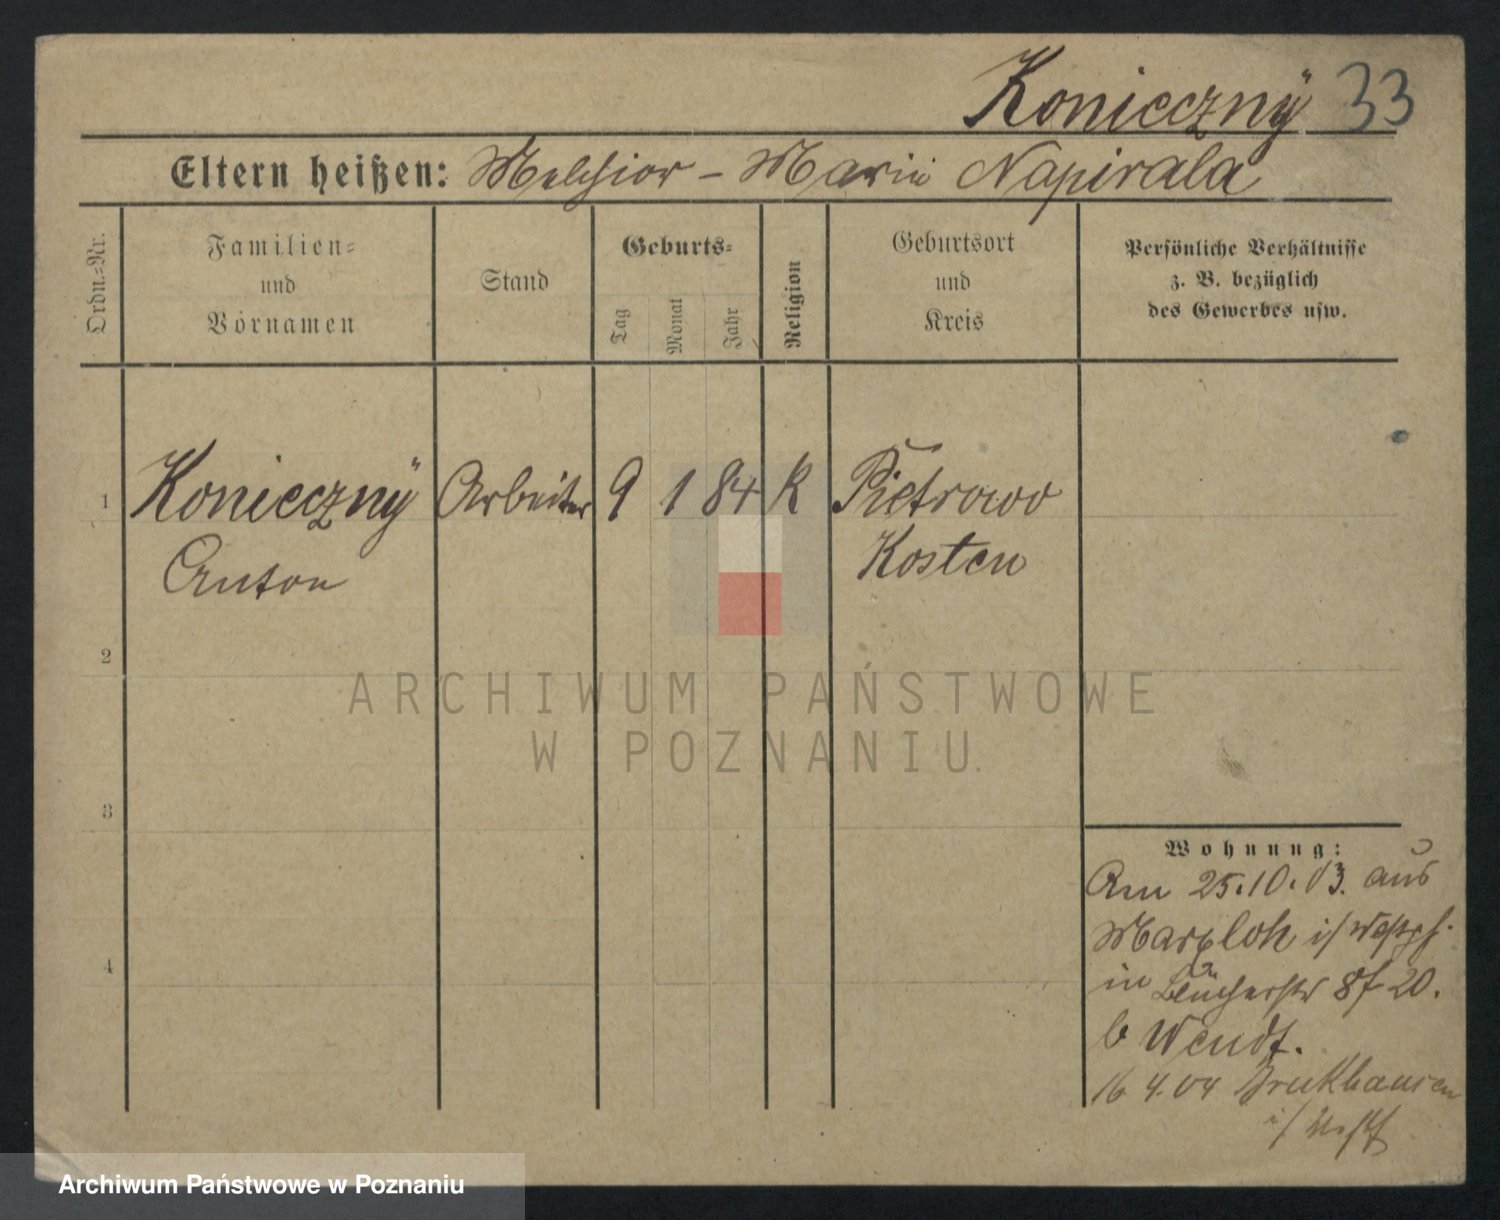 Koniecznÿ 33
Eltern heißen: Melchior – Marie Napirala
Ordn.=Nr.
Familien=
und
Vornamen
Stand
Geburts=
Tag
Monat
Jahr
Religion
Geburtsort
und
Kreis
Persönliche Verhältnisse
z. B. bezüglich
des Gewerbes usw.
1 Koniecznÿ Arbeiter 9 1 84 K Pietrowo
Anton Kosten
2
3
4
Wohnung:
Am 25.10.03. aus
Marxloh i/ Westpf.
in Blücherstr 8 20.
b Wendt.
16 4.04 Bruckhausen
i/
ARCHIWUM PAŃSTWOWE
W POZNANIU
Archiwum Państwowe w Poznaniu